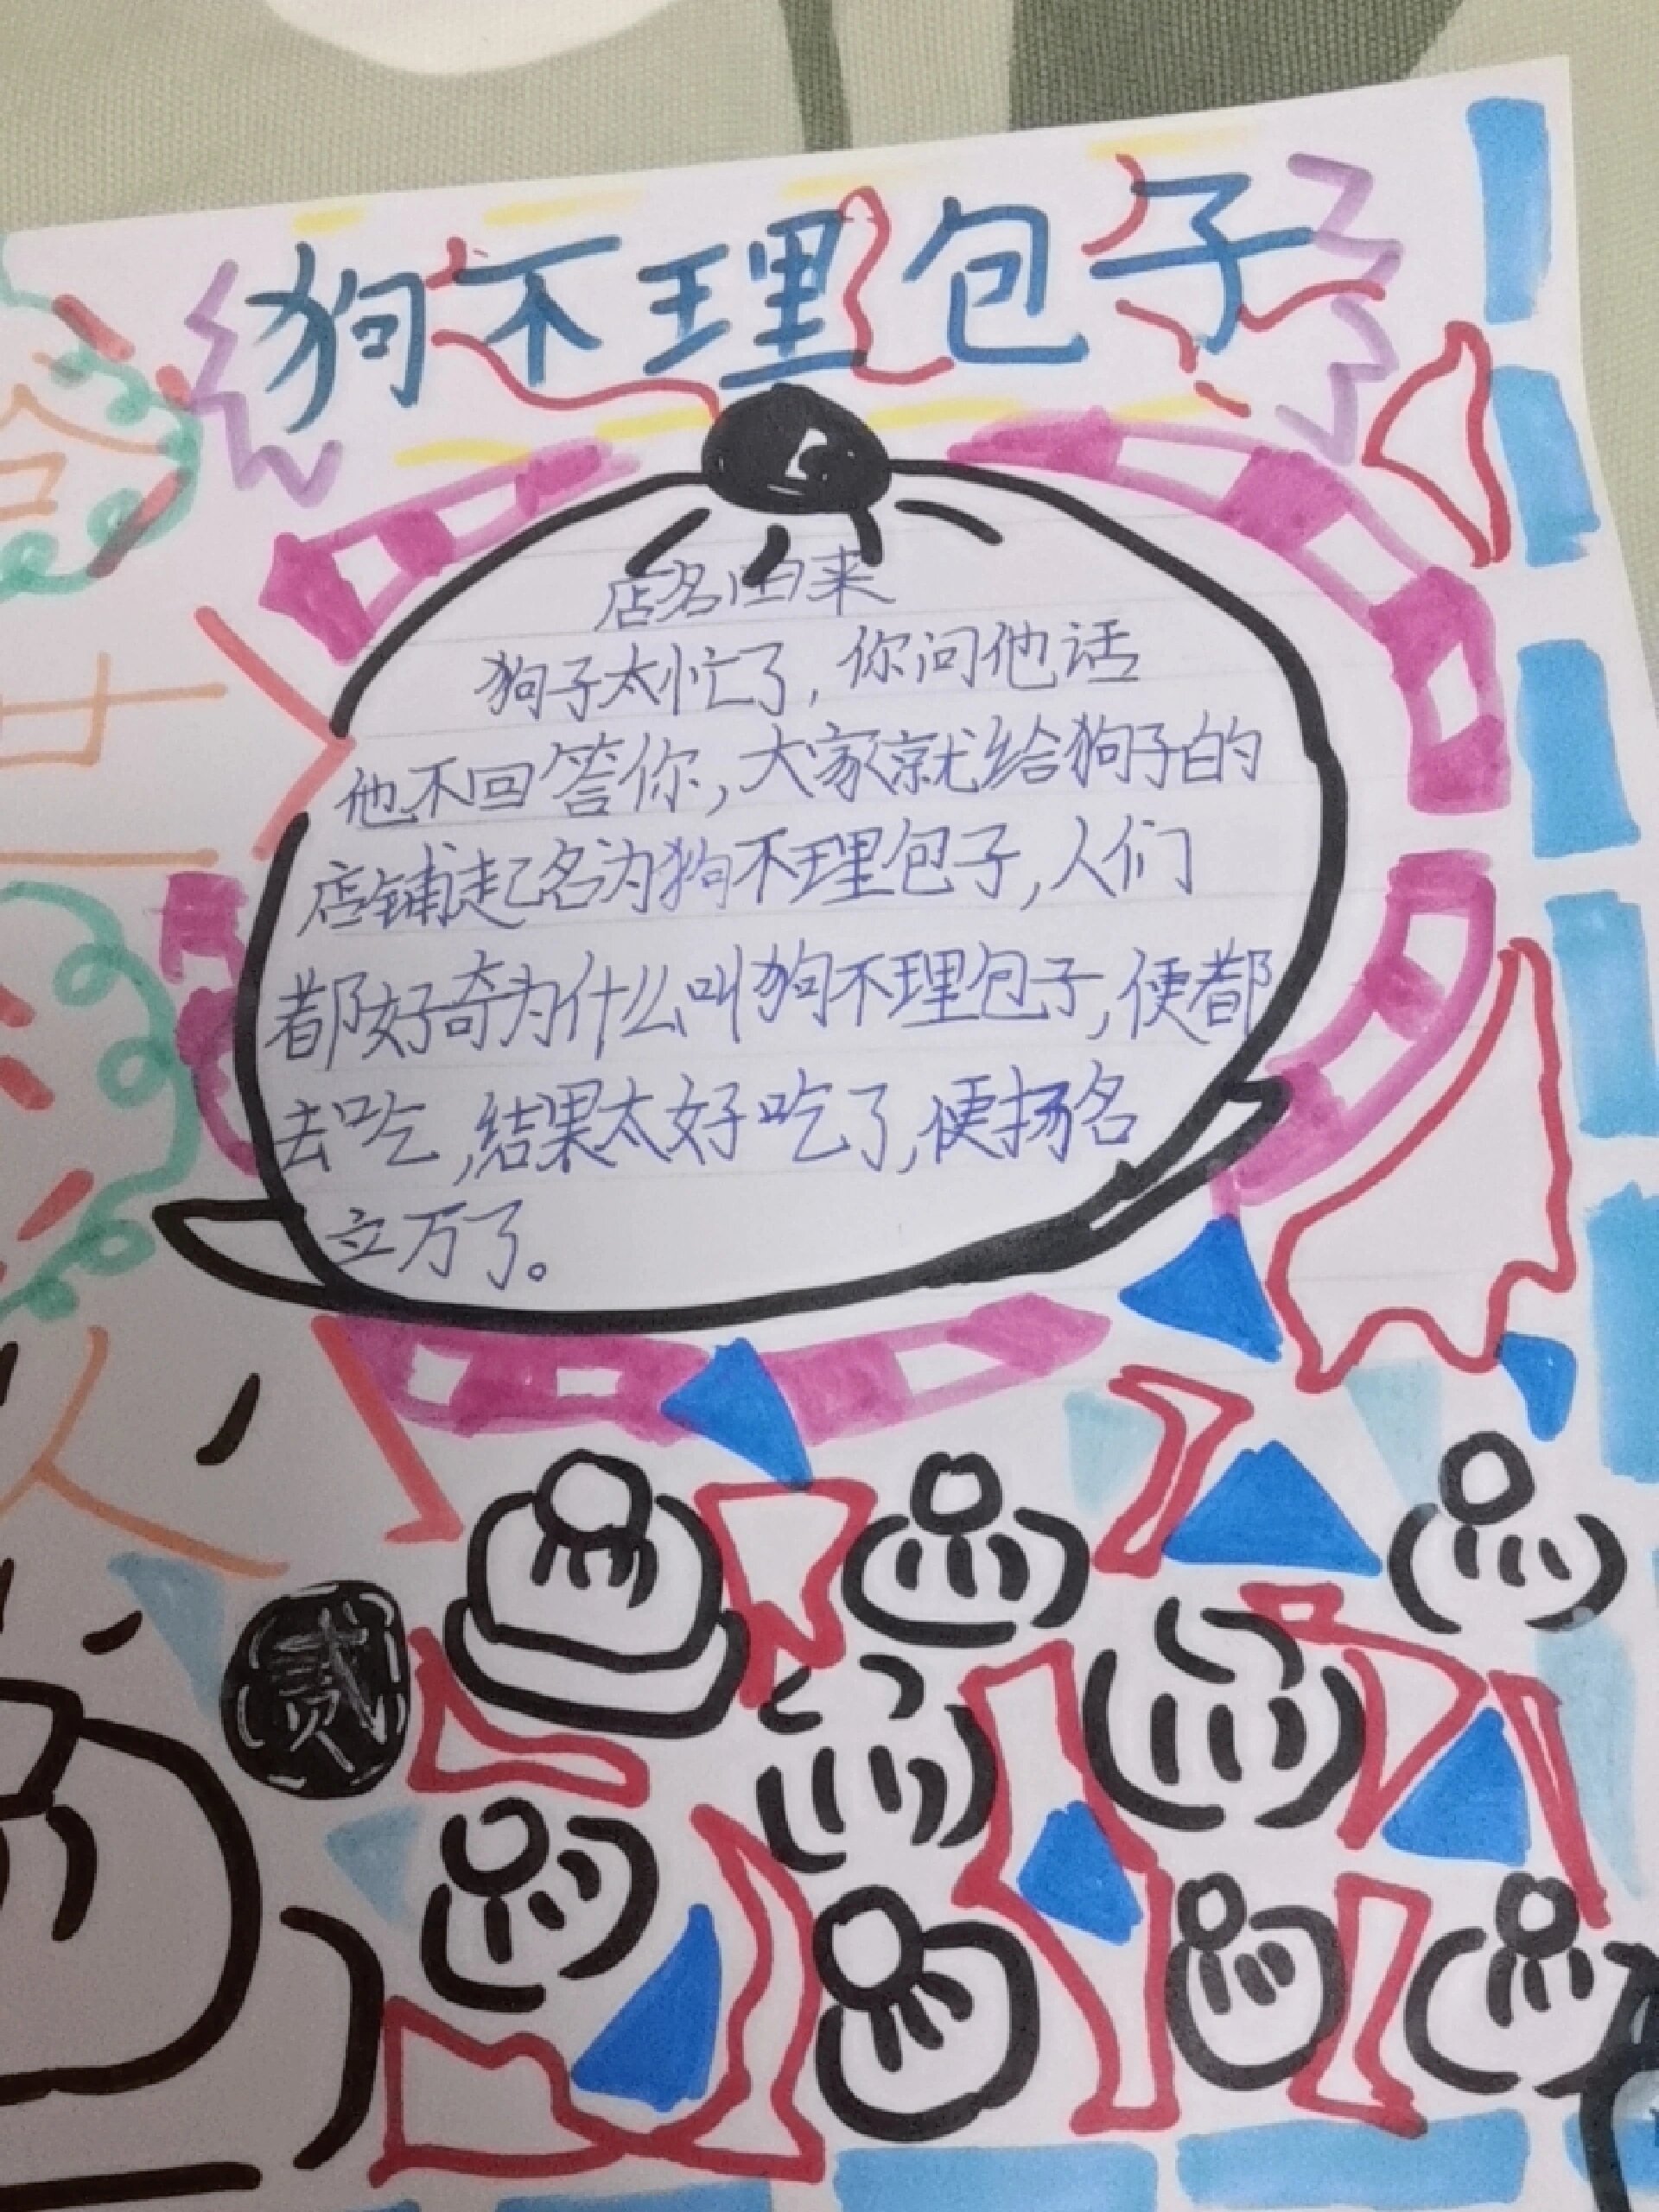 狗不理包子
店名由来
狗子太忙了，你问他话
他不回答你，大家就给狗子的
店铺起名为狗不理包子，人们
都好奇为什么叫狗不理包子，便都
去吃，结果太好吃了，便扬名
立万了。
贰